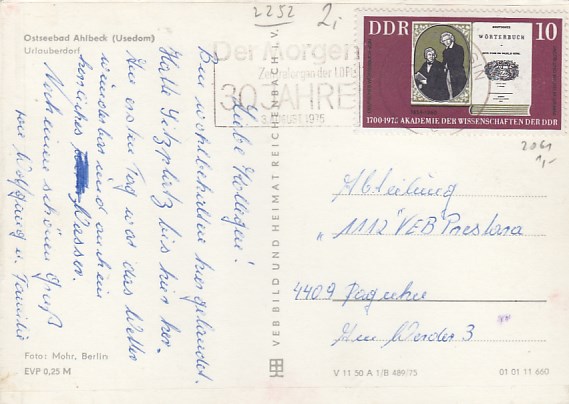 2252 2,-
Ostseebad Ahlbeck (Usedom)
Urlauberdorf
Liebe Kollegen!
Bin wohlbehalten hier gelandet.
Hatte Sitzplatz bis hier her.
Am ersten Tag war das Wetter
wunderbar und auch ein
herrliches Wasser.
Noch einen schönen Gruß
von Wolfgang u. Familie
Foto: Mohr, Berlin
EVP 0,25 M
VEB BILD UND HEIMAT REICHENBACH i. V.
Der Morgen
Zentralorgan der LDPD
30 JAHRE
3. AUGUST 1975
DDR
10
WÖRTERBUCH
1700-1975 AKADEMIE DER WISSENSCHAFTEN DER DDR
2061
1,-
Abteilung
„1112" VEB
4409
Am Werder 3
V 11 50 A 1/B 489/75
01 01 11 660